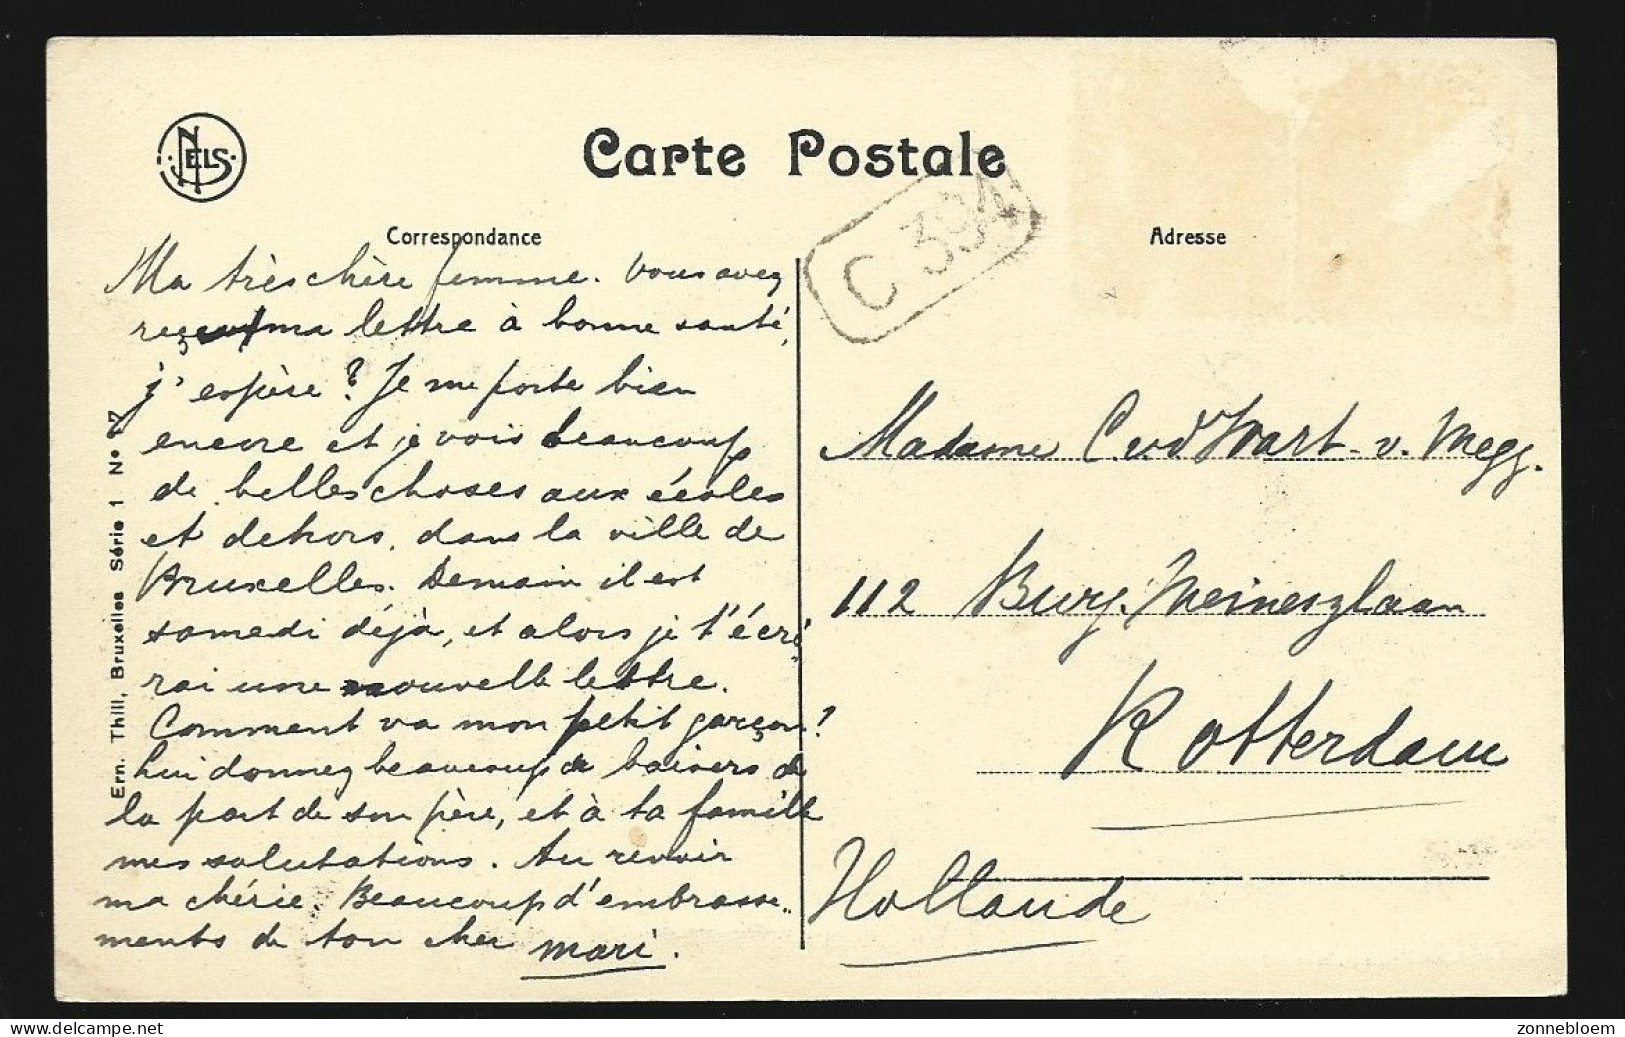 NELS
Carte Postale
C 394
Correspondance
Adresse
Ma très chère femme. Vous avez
reçu ma lettre à bonne santé,
j'espère? Je me porte bien
encore et je vois beaucoup
de belles choses aux écoles
et dehors, dans la ville de
Bruxelles. Demain il est
samedi déjà, et alors je t'écri
rai une nouvelle lettre.
Comment va mon petit garçon?
Lui donnez beaucoup de baisers de
la part de son père, et à ta famille
mes salutations. Au revoir
ma chérie. Beaucoup d'embrasse..
ments de ton cher mari.
Ern. Thill, Bruxelles Série 1 No 17
Madame C. v d Wart - v. Megg.
112 Burg. Meineszlaan
Rotterdam
Hollande
zonnebloem